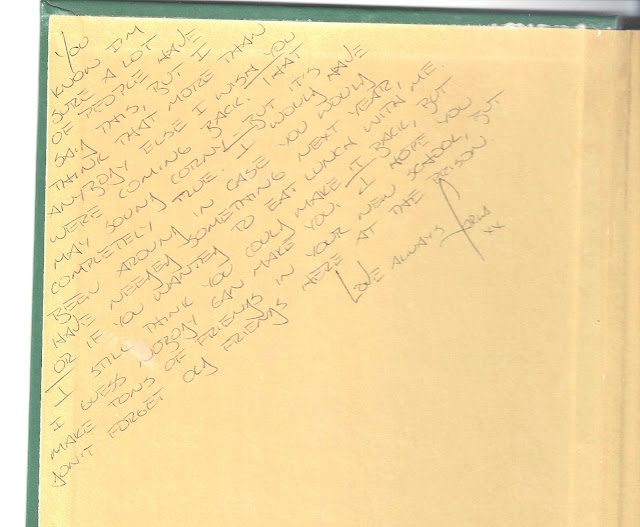 You
KNOW I'M
SURE A LOT
OF PEOPLE HAVE
SAID THIS, BUT I
THINK THAT MORE THAN
ANYBODY ELSE I WISH YOU
WERE COMING BACK. THAT
MAY SOUND CORNY BUT IT'S
COMPLETELY TRUE. I WOULD HAVE
BEEN AROUND IN CASE YOU WOULD
HAVE NEEDED SOMETHING NEXT YEAR,
OR IF YOU WANTED TO EAT LUNCH WITH ME.
I STILL THINK YOU COULD MAKE IT BACK, BUT
I GUESS NOBODY CAN MAKE YOU. I HOPE YOU
MAKE TONS OF FRIENDS IN YOUR NEW SCHOOL, BUT
DON'T FORGET OLD FRIENDS HERE AT THE PRISON
LOVE ALWAYS
xx